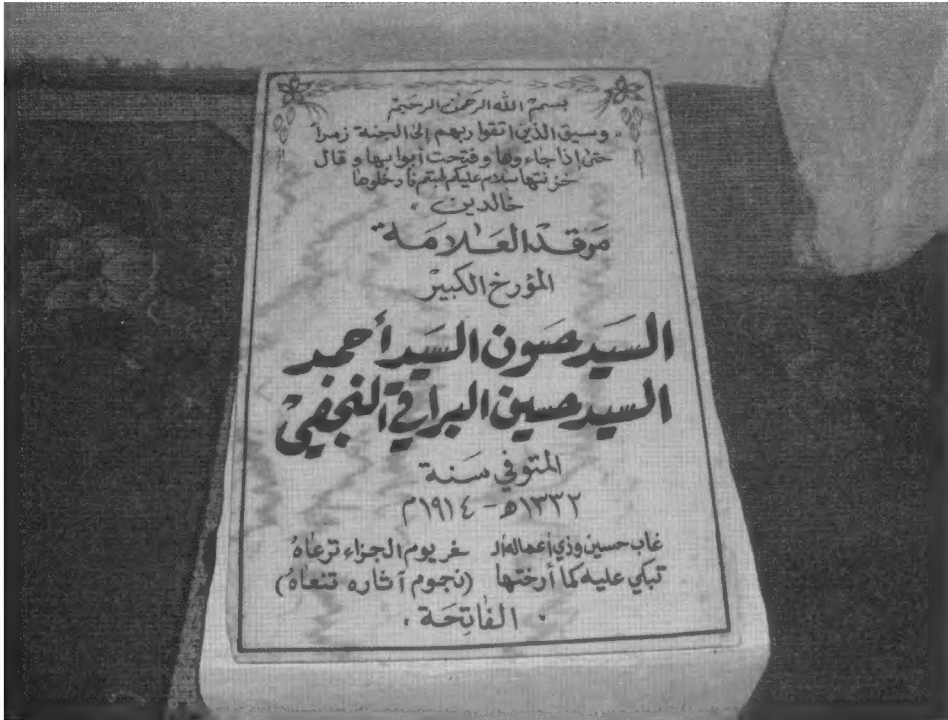 بسم الله الرحمن الرحيم
« وسيق الذين اتقوا ربهم إلى الجنة زمراً
حتى إذا جاءوها وفتحت أبوابها وقال
خزنتها سلام عليكم طبتم فادخلوها
خالدين »
مرقد العلامة
المؤرخ الكبير
السيد حسون السيد أحمد
السيد حسين البراقي النجفي
المتوفي سنة
١٣٣٢هـ - ١٩١٤م
غاب حسين وذي أعماله الـ غر يوم الجزاء ترعاهُ
تبكي عليه كما أرختها (نجوم آثاره تنعاهُ)
٠ الفاتحة ٠